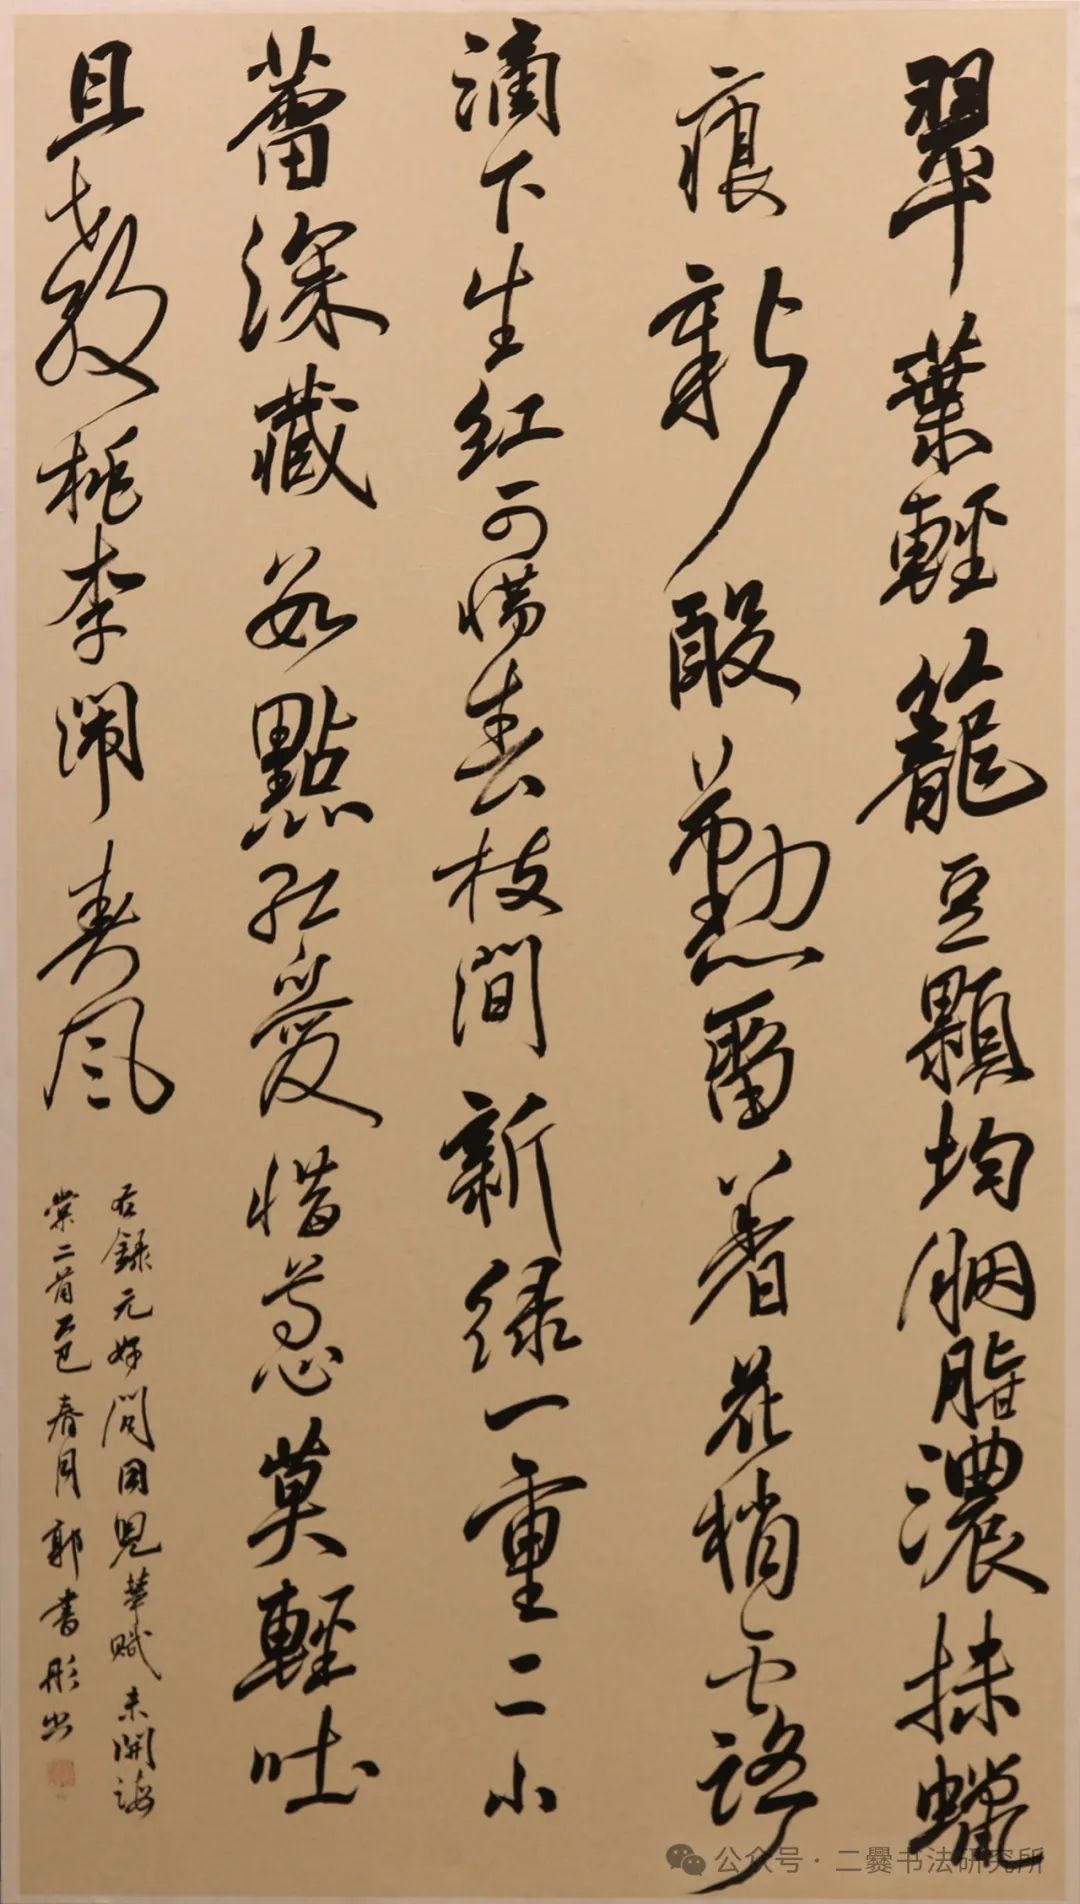 翠葉輕籠豆顆均胭脂濃抹蠟
痕新殷勤畱着花梢露
滴下生紅可惜春枝間新綠一重二小
蕾深藏數點紅愛惜芳心莫輕吐
且教桃李鬧春風
右錄元好問同兒輩賦未開海
棠二首乙巳春月郭書彤书
公众号·二爨书法研究所